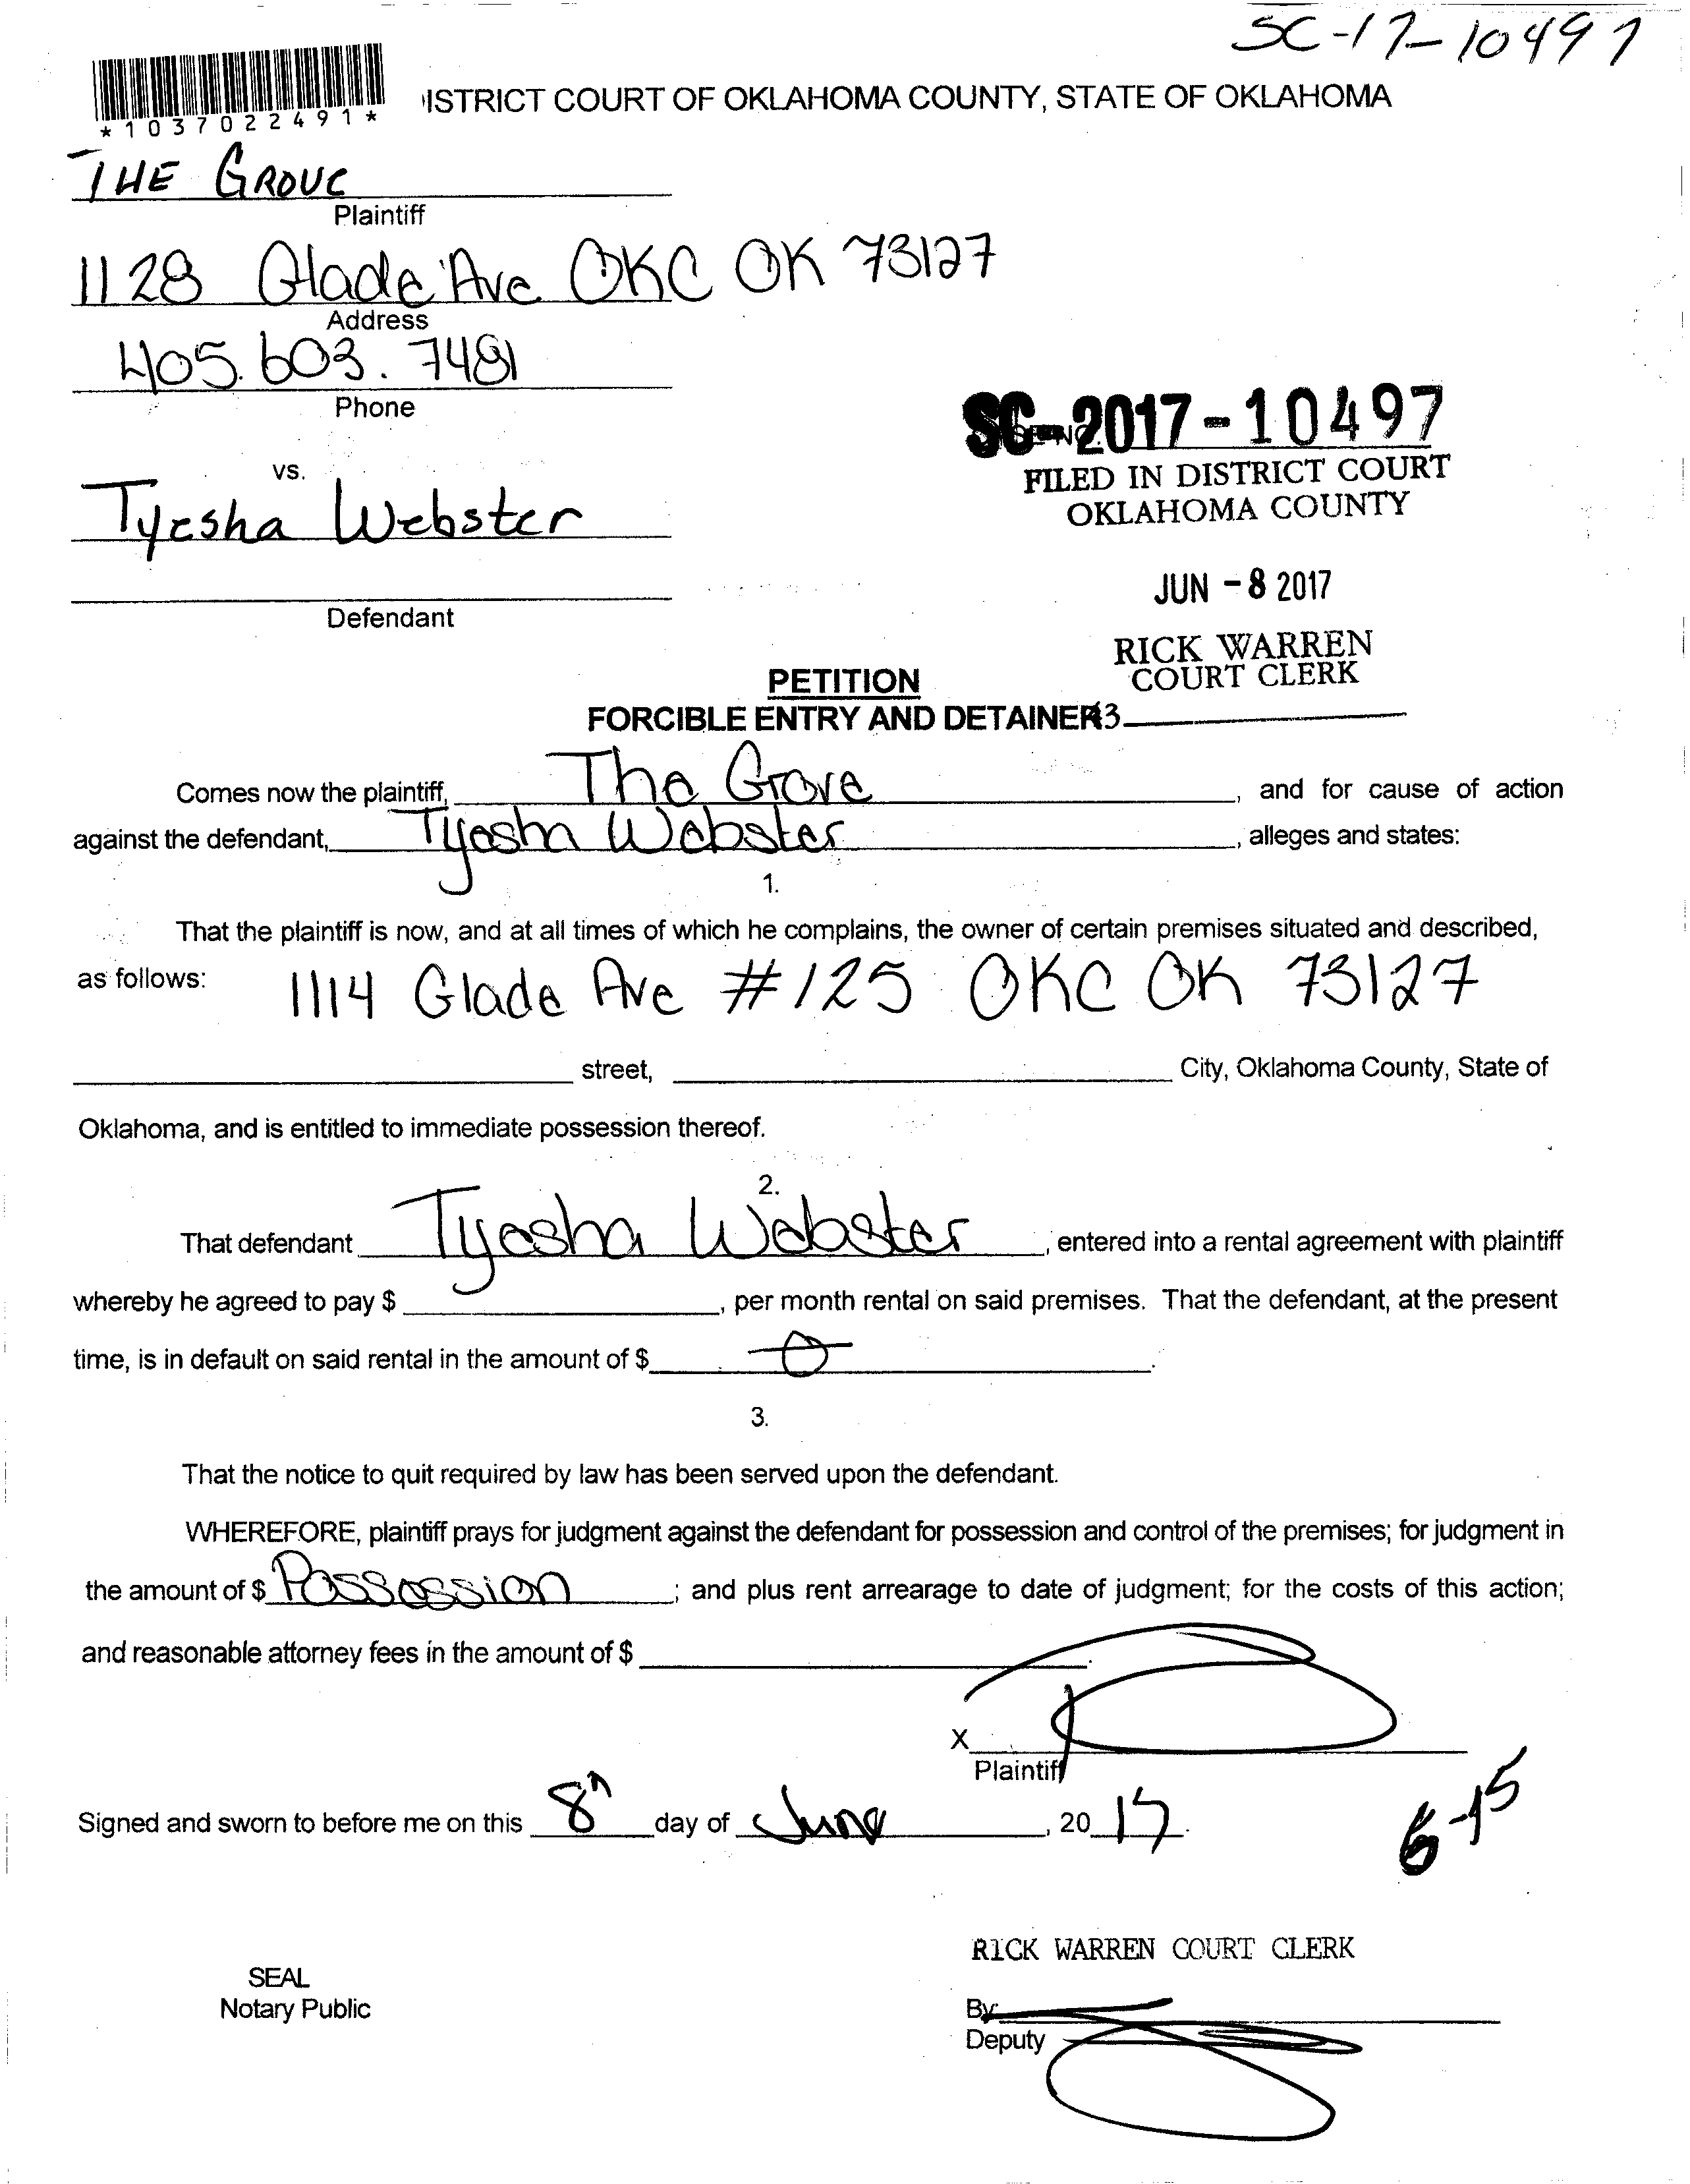 SC-17-10497
*1037022491*
ISTRICT COURT OF OKLAHOMA COUNTY, STATE OF OKLAHOMA
THE GROVE
Plaintiff
1128 Glade Ave OKC OK 73127
Address
405.603.7481
Phone
SC-2017-10497
FILED IN DISTRICT COURT
OKLAHOMA COUNTY
vs.
Tyesha Webster
JUN -8 2017
Defendant
RICK WARREN
COURT CLERK
PETITION
FORCIBLE ENTRY AND DETAINER
Comes now the plaintiff, The Grove, and for cause of action
against the defendant, Tyesha Webster, alleges and states:
1.
That the plaintiff is now, and at all times of which he complains, the owner of certain premises situated and described,
as follows: 1114 Glade Ave #125 OKC OK 73127
street, City, Oklahoma County, State of
Oklahoma, and is entitled to immediate possession thereof.
2.
That defendant Tyesha Webster, entered into a rental agreement with plaintiff
whereby he agreed to pay $, per month rental on said premises. That the defendant, at the present
time, is in default on said rental in the amount of $ 0.
3.
That the notice to quit required by law has been served upon the defendant.
WHEREFORE, plaintiff prays for judgment against the defendant for possession and control of the premises; for judgment in
the amount of $ Possession; and plus rent arrearage to date of judgment; for the costs of this action;
and reasonable attorney fees in the amount of $.
X
Plaintiff
Signed and sworn to before me on this 8 day of June, 2017.
6-15
RICK WARREN COURT CLERK
SEAL
Notary Public
By
Deputy